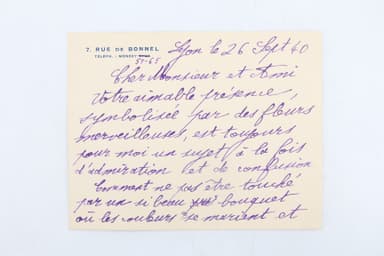 7. RUE DE BONNEL
TÉLÉPH. : MONCEY
51-65
Lyon le 26 Sept 40
Cher Monsieur et Ami
Votre aimable présence,
symbolisée par des fleurs
merveilleuses, est toujours
pour moi un sujet à la fois
d'admiration et de confusion
Comment ne pas être touché
par un si beau bouquet
où les couleurs se marient et